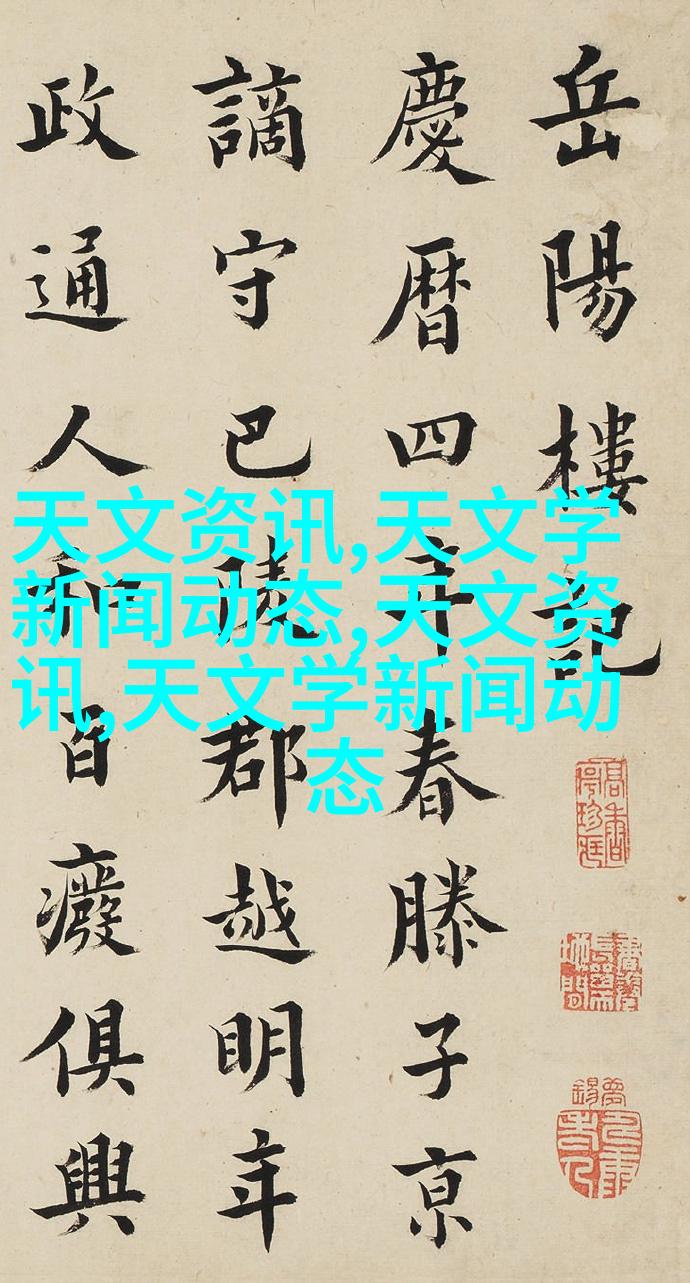 岳陽樓記
慶曆四年春滕子京
謫守巴陵郡越明年
政通人和百廢俱興
天文资讯,天文学
新闻动态,天文资
讯,天文学新闻动
态